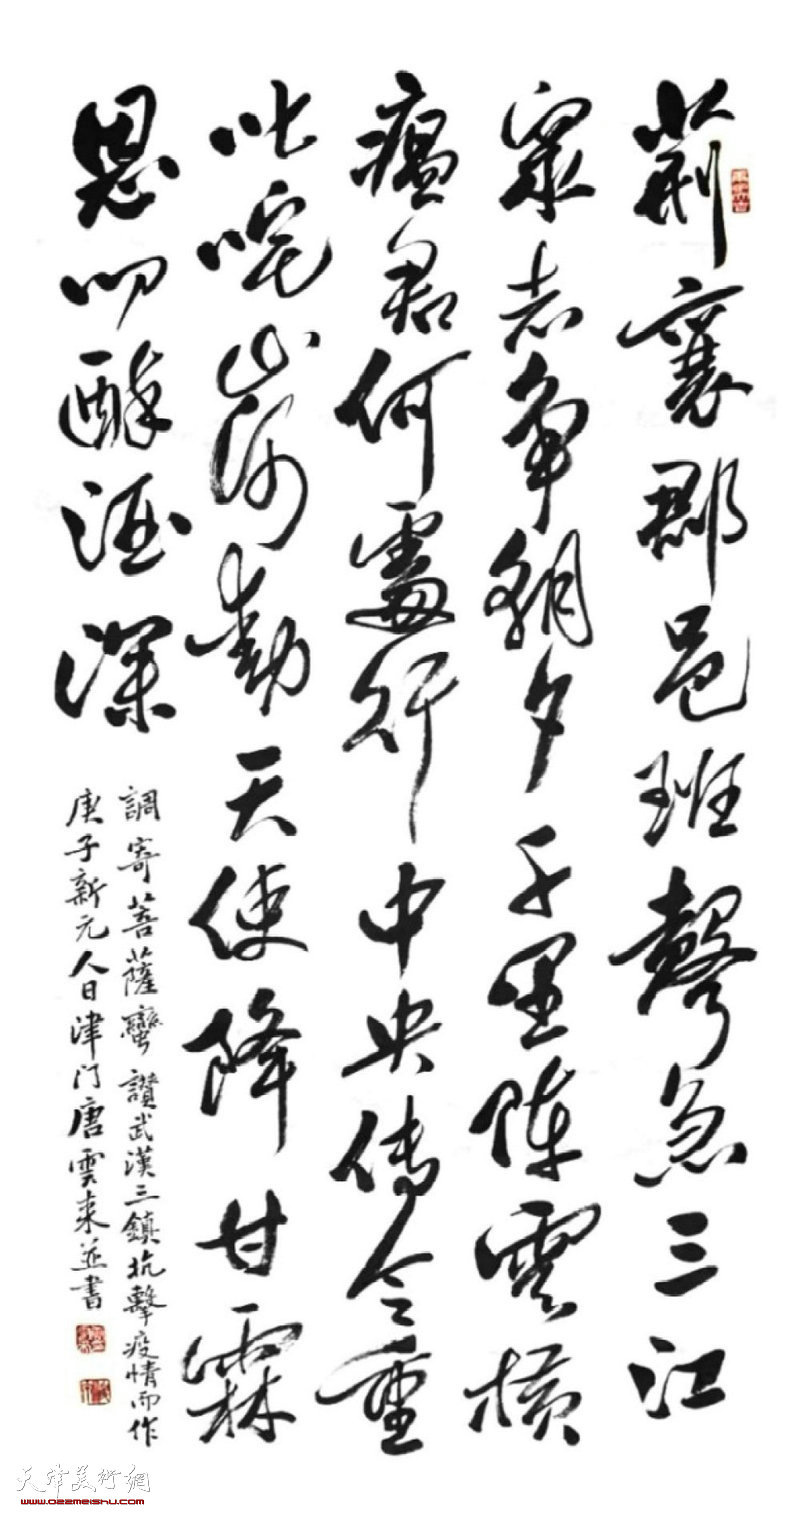 荊襄郡邑班聲急三江
眾志爭朝夕千里陣雲橫
瘟君何處行中央傳令重
叱咤山河動天使降甘霖
恩叨醉酒深
調寄菩薩蠻 讚武漢三鎮抗擊疫情而作
庚子新元人日津門唐雲來並書
天津美術網
www.022meishu.com